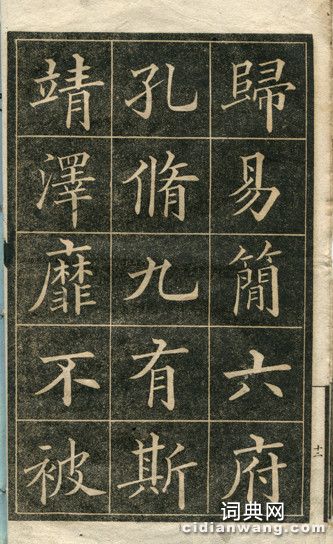 歸易簡六府
孔脩九有斯
靖澤靡不被
十二
词典网
cidianwang.com